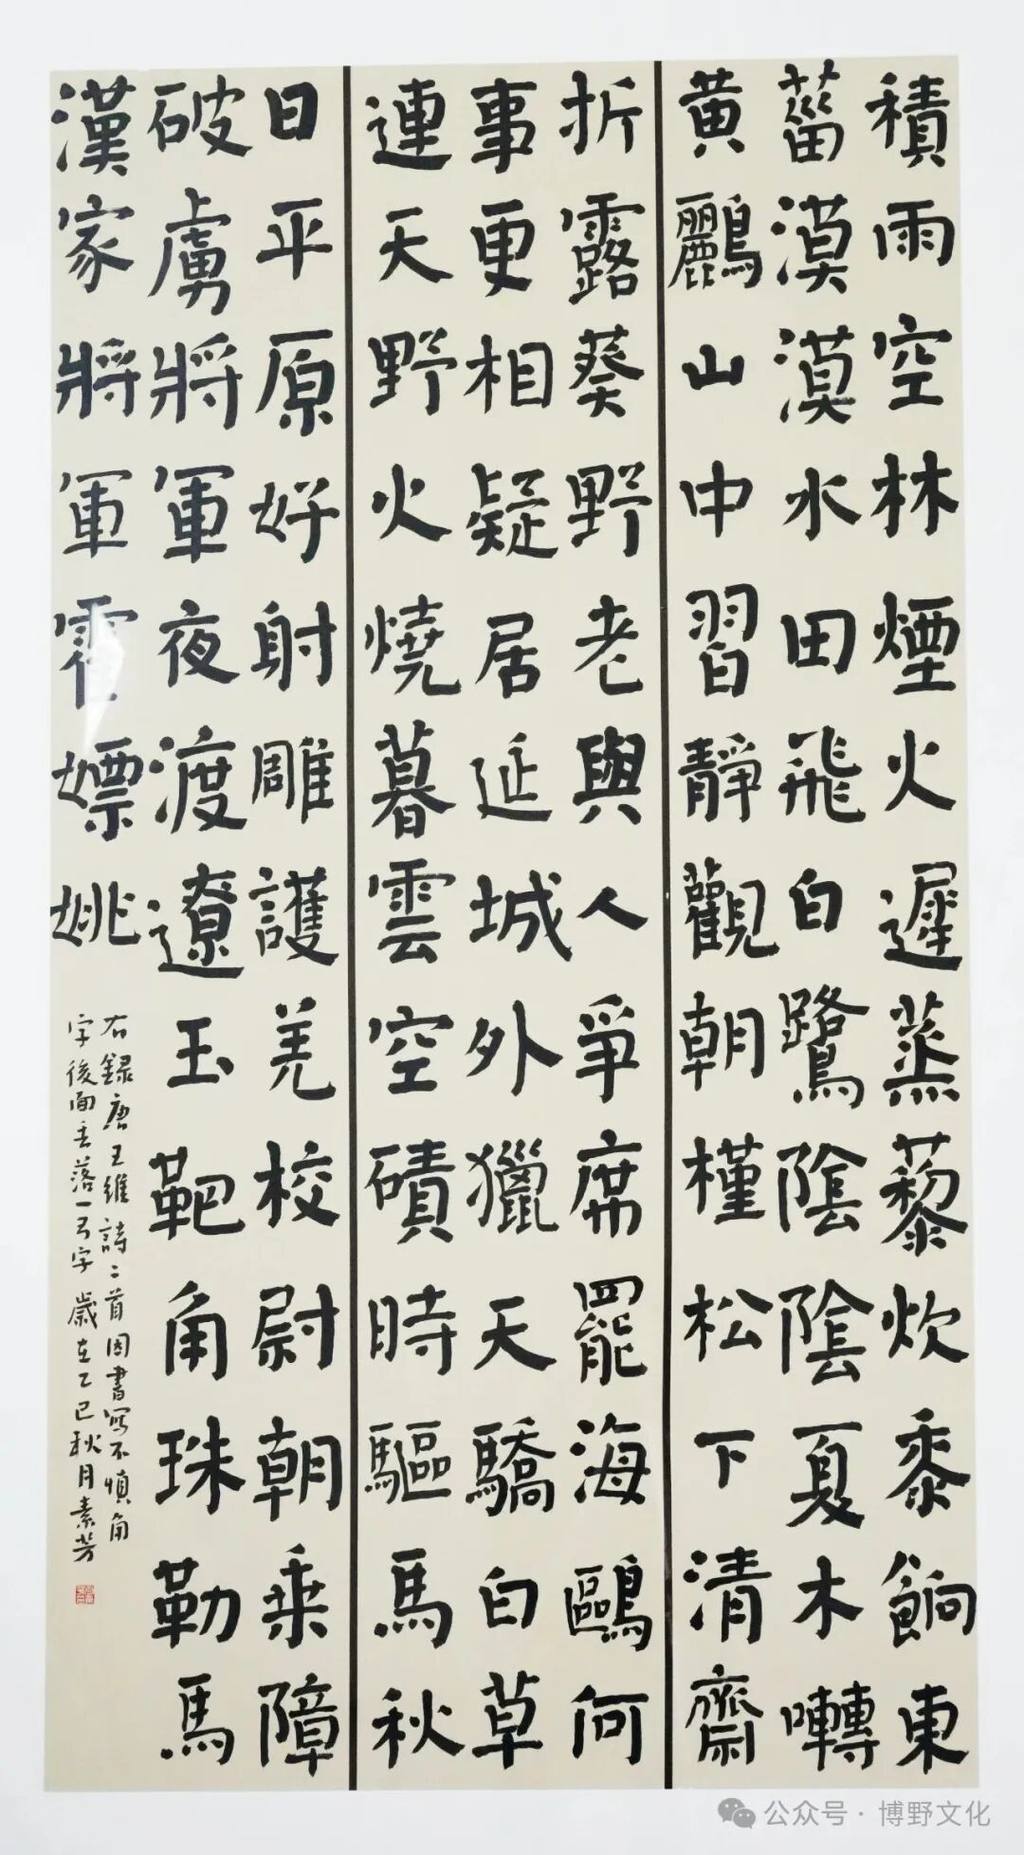 積雨空林煙火遲蒸藜炊黍餉東
菑漠漠水田飛白鷺陰陰夏木囀
黄鸝山中習靜觀朝槿松下清齋
折露葵野老與人爭席罷海鷗何
事更相疑居延城外獵天驕白草
連天野火燒暮雲空磧時驅馬秋
日平原好射雕護羌校尉朝乗障
破虜將軍夜渡遼玉靶角珠勒馬
漢家將軍霍嫖姚
右録唐王維詩二首因書写不慎角
字後面丢落一弓字歲在乙巳秋月素芳
公众号·博野文化